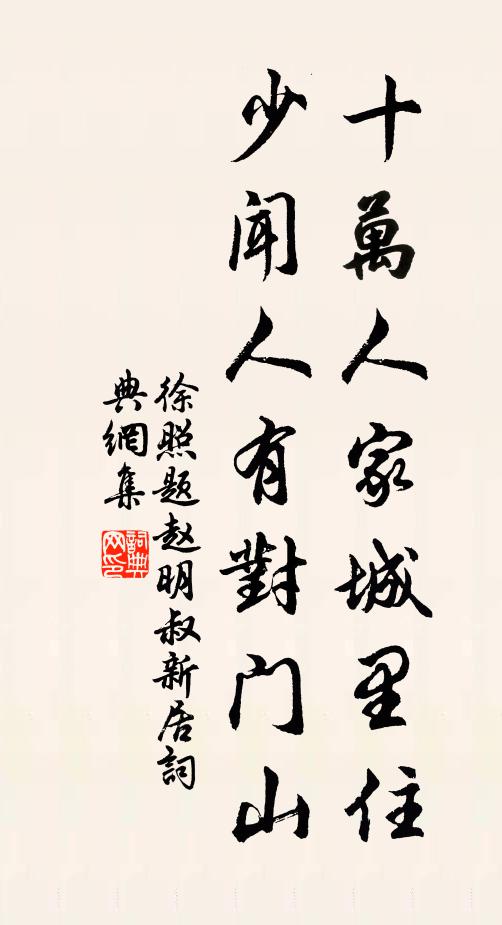 十萬人家城里住
少闻人有對门山
徐照题赵明叔新居詞
典網集
詞典网印